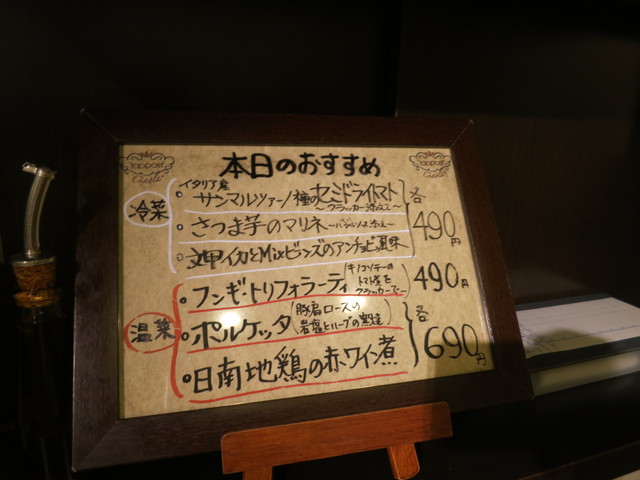 本日のおすすめ
冷菜
イタリア産
サンマルツァーノ種のセミドライトマト
〜クラッカー添え〜
さつま芋のマリネ
甲イカとMixビーンズのアンチョビ風味
各
490円
温菜
フンギ・トリフォラーティ
トマト
クラッカーで
490円
ポルケッタ
豚肩ロースの
岩塩とハーブの
日南地鶏の赤ワイン煮
各
690円